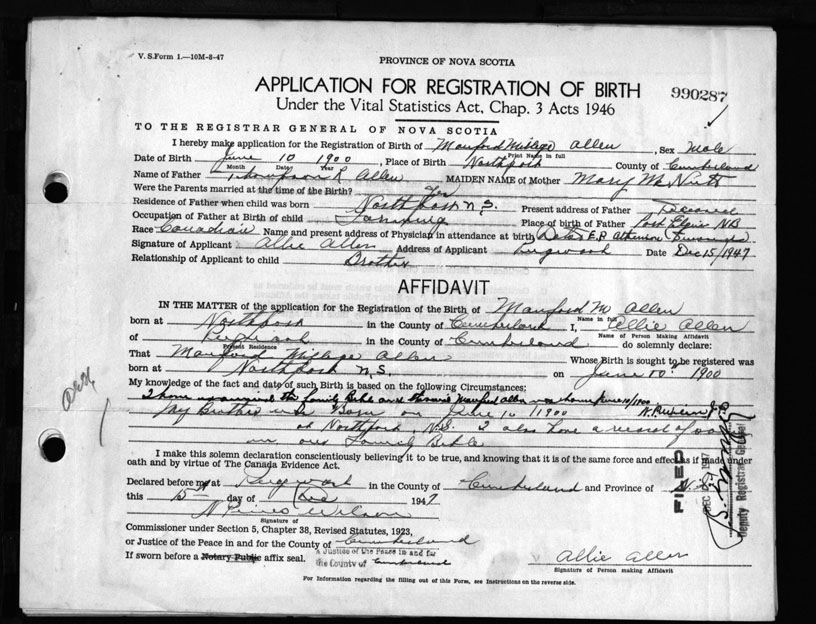 V. S. Form 1.—10M-8-47
PROVINCE OF NOVA SCOTIA
APPLICATION FOR REGISTRATION OF BIRTH
990287
Under the Vital Statistics Act, Chap. 3 Acts 1946
TO THE REGISTRAR GENERAL OF NOVA SCOTIA
I hereby make application for the Registration of Birth of Manford Allen, Sex Male
Print Name in full
Date of Birth June 10 1900, Place of Birth Northport County of Cumberland
Month Date Year
Name of Father Thompson R Allen MAIDEN NAME of Mother Mary
Were the Parents married at the time of the Birth? Yes
Residence of Father when child was born Northport N.S. Present address of Father Deceased
Occupation of Father at Birth of child Farming Place of birth of Father Port Elgin NB
Race Canadian Name and present address of Physician in attendance at birth E.P. Atkinson
Signature of Applicant Allie Allen Address of Applicant Pugwash Date Dec 15/1947
Relationship of Applicant to child Brother
AFFIDAVIT
IN THE MATTER of the application for the Registration of the Birth of Manford M Allen
Name in full
born at Northport in the County of Cumberland I, Allie Allen
Name of Person Making Affidavit
of Pugwash in the County of Cumberland do solemnly declare:
Present Residence
That Manford Allen Whose Birth is sought to be registered was
born at Northport N.S. on June 10" 1900
My knowledge of the fact and date of such Birth is based on the following Circumstances:
I have examined the family Bible and Manford Allen was born June 10/1900
My Brother was Born on June 10/1900
at Northport, N.S. I also have a record of
in our Family Bible
I make this solemn declaration conscientiously believing it to be true, and knowing that it is of the same force and effect as if made under
oath and by virtue of The Canada Evidence Act.
Declared before me at Pugwash in the County of Cumberland and Province of N.S.
this 15 day of Dec 1947
Signature of
Commissioner under Section 5, Chapter 38, Revised Statutes, 1923,
or Justice of the Peace in and for the County of Cumberland
If sworn before a Notary Public affix seal.
A Justice of the Peace in and for
the County of Cumberland
Allie Allen
Signature of Person making Affidavit
For Information regarding the filling out of this Form, see Instructions on the reverse side.
FILED
DEC 1947
Deputy Registrar General